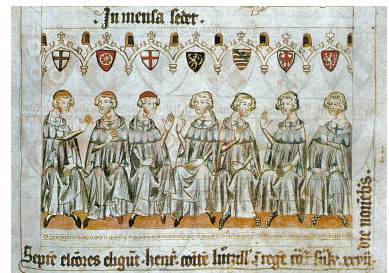 In mensa sedet.
Septē elc̄ores eligūt. henr̄. comitē lutzillb̄. ī regē ro'. frāk. xxvij
die nouēbris.